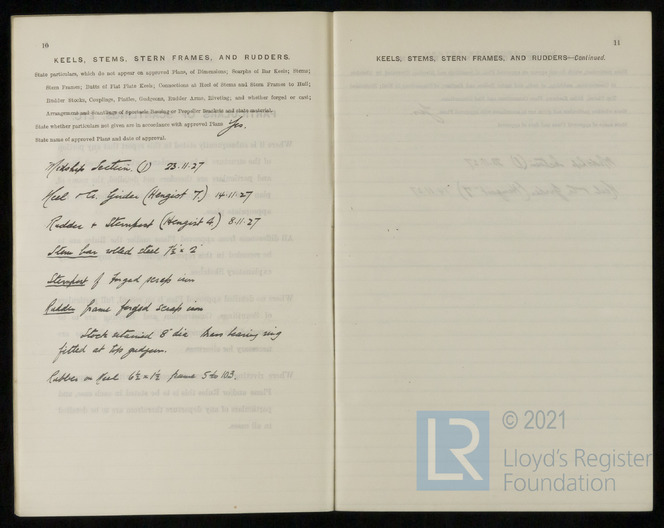 10
KEELS, STEMS, STERN FRAMES, AND RUDDERS.
State particulars, which do not appear on approved Plans, of Dimensions; Scarphs of Bar Keels; Stems;
Stern Frames; Butts of Flat Plate Keels; Connections at Heel of Stems and Stern Frames to Hull;
Rudder Stocks, Couplings, Pintles, Gudgeons, Rudder Arms, Riveting; and whether forged or cast;
Arrangement and Scantlings of Spectacle Bossing or Propeller Brackets and state material.
State whether particulars not given are in accordance with approved Plans Yes.
State name of approved Plans and date of approval.
Midship Section (1) 23.11.27
Keel & Cr. Girder (Hengist 7) 14.11.27
Rudder & Sternpost (Hengist 4) 8.11.27
Stem bar rolled steel 7½ × 2"
Sternpost of forged scrap iron
Rudder frame forged scrap iron
Stock retained 8" dia brass bearing ring
fitted at top gudgeon.
Rubber on Keel 6½ × 1½ frame 5 to 103.
11
KEELS, STEMS, STERN FRAMES, AND RUDDERS—Continued.
LR
© 2021
Lloyd's Register
Foundation